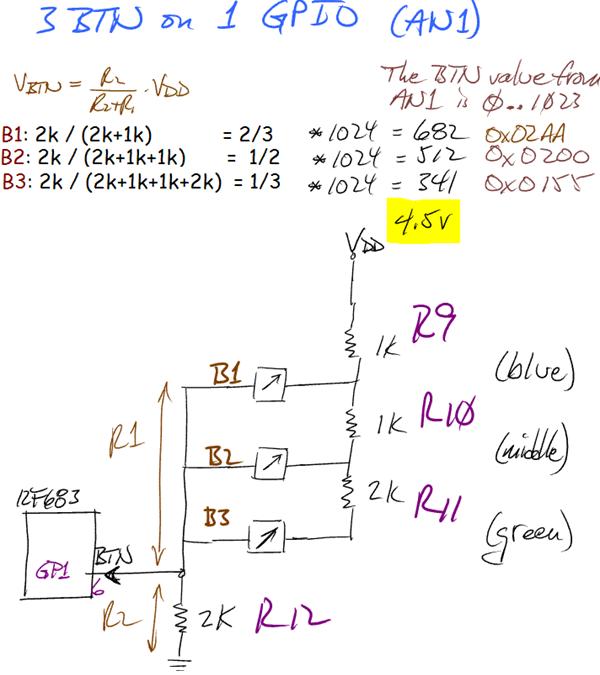 3 BTN on 1 GPIO (AN1)
VBTN = R2 / (R2+R1) · VDD
The BTN value from
AN1 is 0..1023
B1: 2k / (2k+1k) = 2/3 *1024 = 682 0x02AA
B2: 2k / (2k+1k+1k) = 1/2 *1024 = 512 0x0200
B3: 2k / (2k+1k+1k+2k) = 1/3 *1024 = 341 0x0155
4.5v
VDD
1k R9
B1
(blue)
R1
1k R10
B2
(middle)
2k R11
B3
(green)
12F683
BTN
GP1
6
R2
2k R12